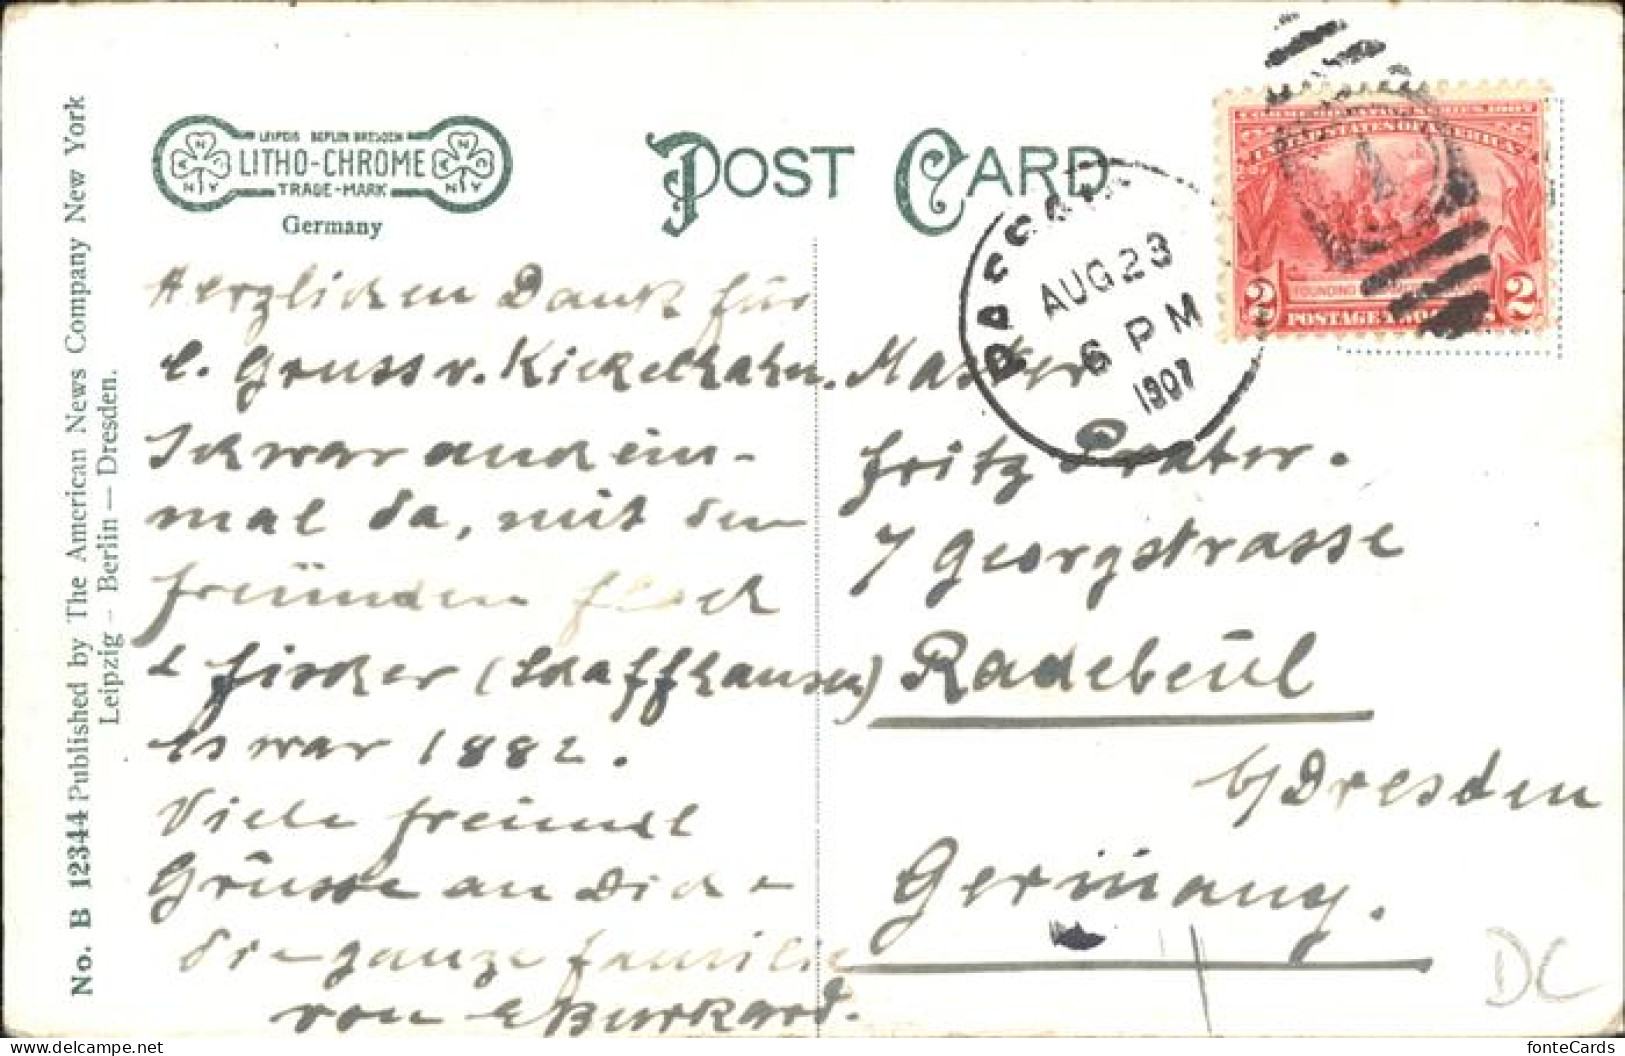 LEIPZIG BERLIN DRESDEN
LITHO-CHROME
TRADE-MARK
Germany
POST CARD
No. B 12344 Published by The American News Company New York
Leipzig – Berlin — Dresden.
AUG 23
6 PM
1907
2 2
POSTAGE
Herzlichen Dank für
l. Gruss v. Kickelhahn.
Ich war auch ein-
mal da, mit den
freünden
& Fischer (Schaffhausen)
Es war 1882.
Viele freundl
Grüsse an Dich &
die ganze familie
von E Burkard.
Master
Fritz Prater.
7 Georgstrasse
Radebeül
b/Dresden
Germany.
DC
fonteCards